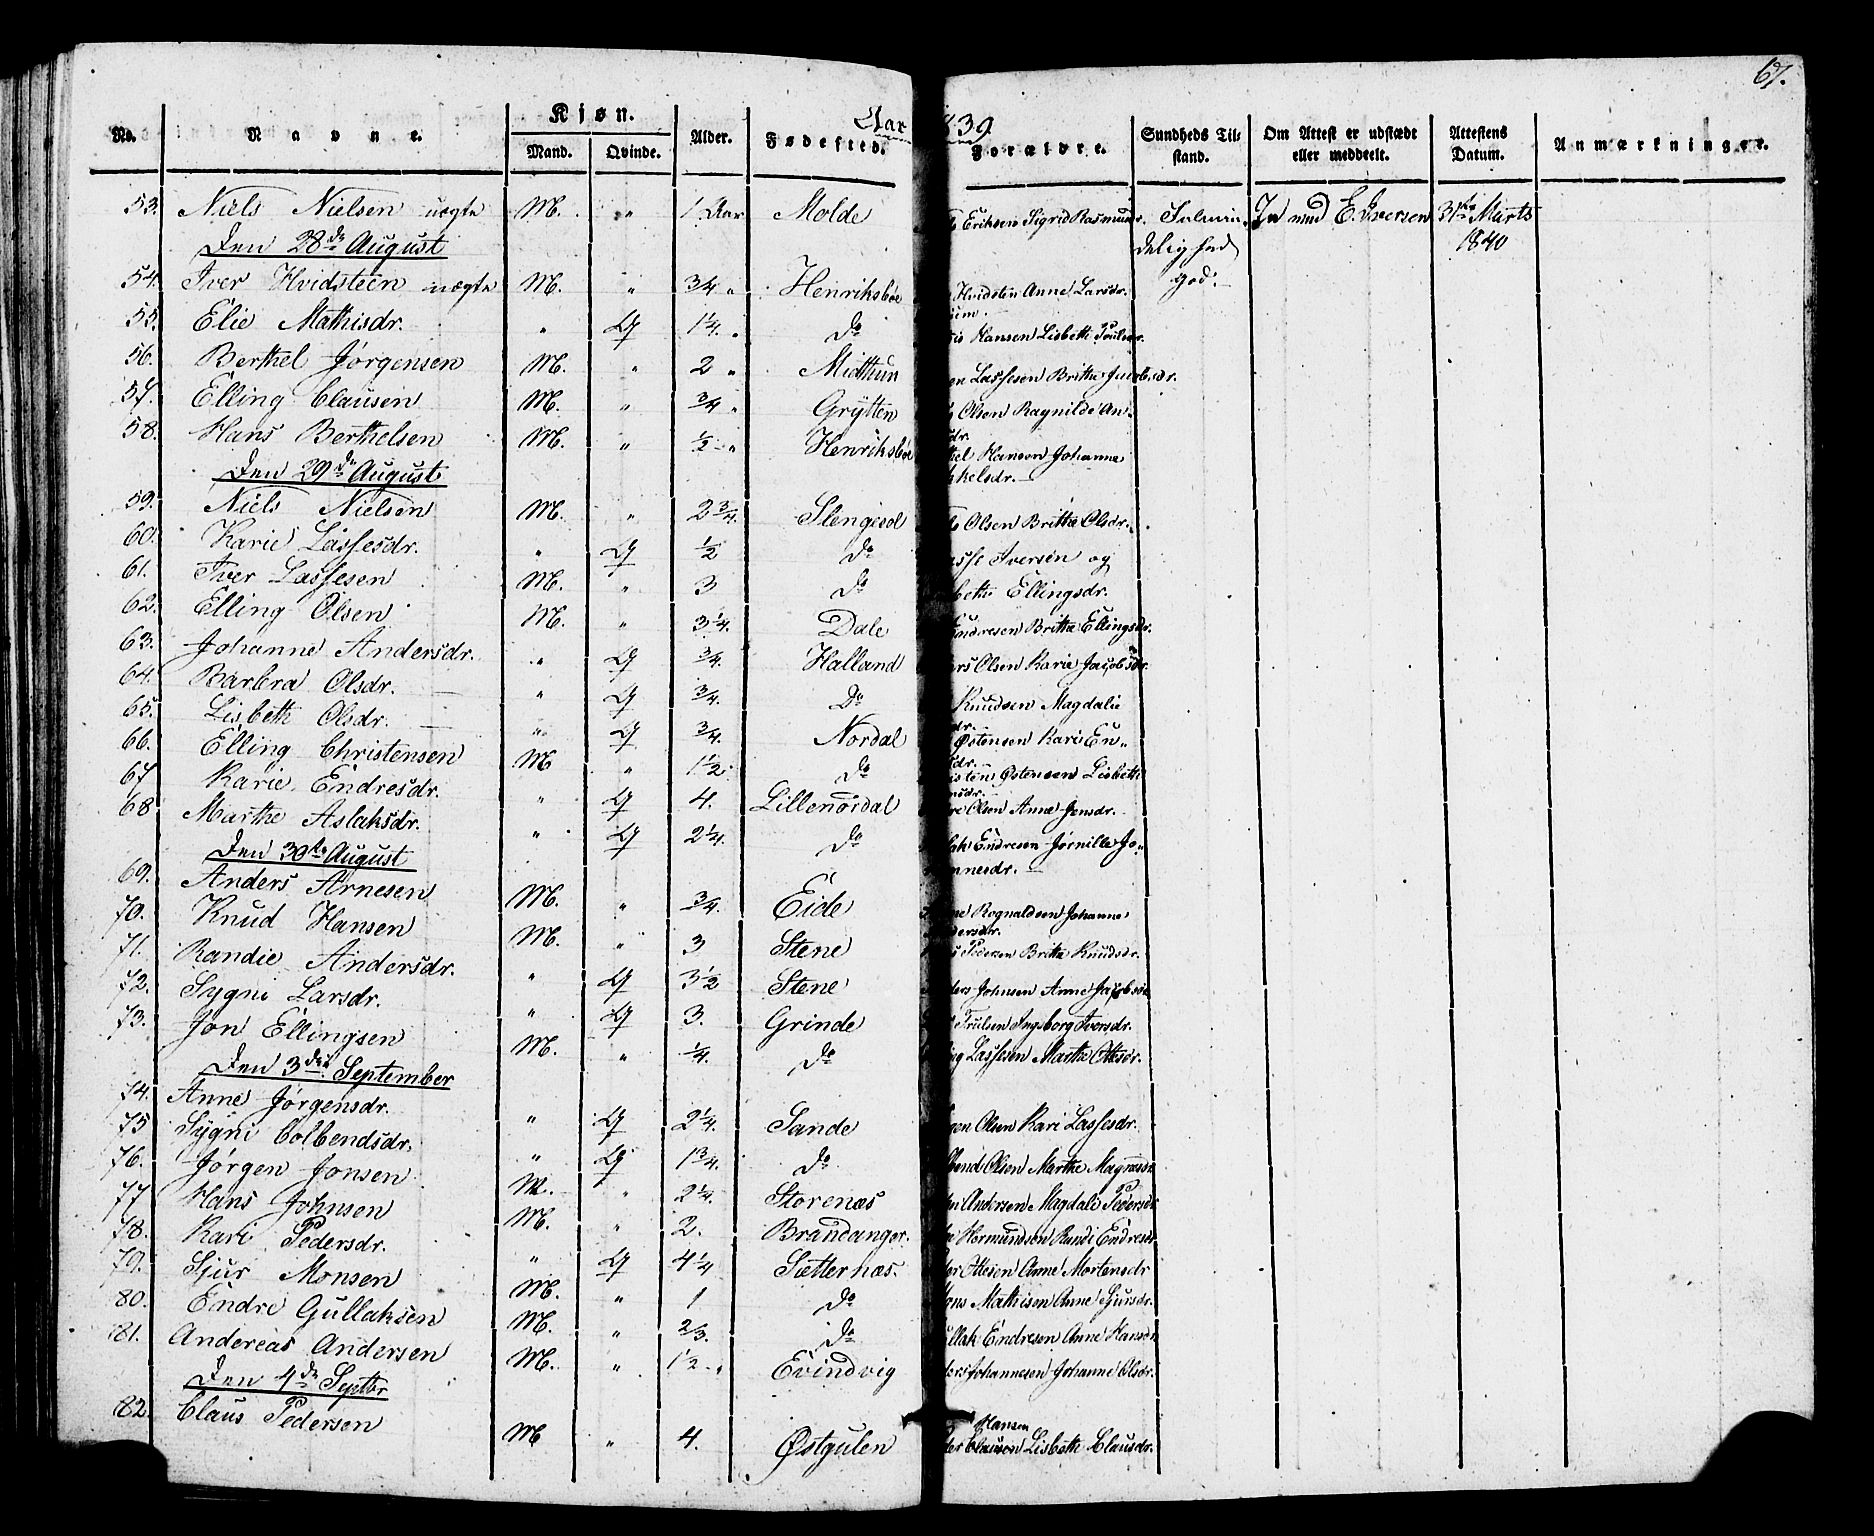 67.
Aar 1839.
No. Navne. Kjøn. Alder. Fødested. Forældre. Sundheds Til- Om Attest er udstædt Attestens Anmærkninger.
Mand. Qvinde. stand. eller meddeelt. Datum.
53. Niels Nielsen uægte M. " 1 Aar Molde Eriksen Sigrid Rasmusdr. Ja med E. Iversen 31te Marts
Den 28de August delighed 1840
54. Iver Hvidsteen uægte M. " 3/4 " Henriksbøe Hvidsten Anne Larsdr. god.
55. Elie Mathisdr. " Q 1 1/4. " do Hansen Lisbeth
56. Berthel Jørgensen M. " 2 " Midthun Lassesen Britha Jacobsdr.
57. Elling Clausen M. " 3/4 " Grytten Olsen Ragnilde An-
dr.
58. Hans Berthelsen M. " 1/2 " Henriksbøe Hansen Johanne
kelsdr.
Den 29de August
59. Niels Nielsen M. " 2 3/4. Slengesol Olsen Britha Olsdr.
60. Karie Lassesdr. " Q 1/2 do asse Iversen og
61. Iver Lassesen M. " 3 do beth Ellingsdr.
62. Elling Olsen M. " 3 1/4. Dale Endresen Britha Ellingsdr.
63. Johanne Andersdr. " Q 3/4. Halland ers Olsen Karie Jacobsdr.
64. Barbra Olsdr. " Q 3/4. Do Knudsen Magdalie
dr.
65. Lisbeth Olsdr. " Q 3/4. Nordal Østensen Kari En-
dr.
66. Elling Christensen M " 1 1/2. do isten Østensen Lisbeth
nsdr.
67 Karie Endresdr. " Q 4. Lillenordal re Olsen Anne Jensdr.
68 Marthe Aslaksdr. " Q 2 1/4. do lak Endresen Jørnille Jo-
annesdr.
Den 30te August
69. Anders Arnesen M. " 3/4. Eide ne Rognaldsen Johanne
dersdr.
70. Knud Hansen M. " 3 Stene s Pedersen Britha Knudsdr.
71. Randie Andersdr. " Q 3 1/2 Stene ders Johnsen Anne Jacobsdr
72. Sygni Larsdr. " Q 3. Grinde Trulsen Ingeborg Iversdr.
73. Jon Ellingsen M. " 1/4. do ing Lassesen Marthe Ottesdr.
Den 3die September
74. Anne Jørgensdr. " Q 2 1/4. Sande gen Olsen Kari Lassesdr.
75 Sygni Colbendsdr. " Q 1 3/4. do bend Olsen Marthe Magnesdr
76. Jørgen Jonsen M. " 2 1/4. Storenæs en Andersen Magdali Pedersdr
77 Hans Johnsen M. " 2. Brandanger. Hermundsen Randi Endresdr.
78. Kari Pedersdr. " Q 4 1/4 Sætternæs. der Ottesen Anne Mortensdr
79. Sjur Monsen M. " 1 do Mons Mathisen Anne Sjursdr.
80. Endre Gullaksen M. " 2/3. do ullak Endresen Anne Hansdr
81. Andereas Andersen M. " 1 1/2 " Evindvig ders Johannesen Johanne Olsdr.
Den 4de Septbr
82. Claus Pedersen M " 4. Østgulen Hansen
der Clausen Lisbeth Clausdr.